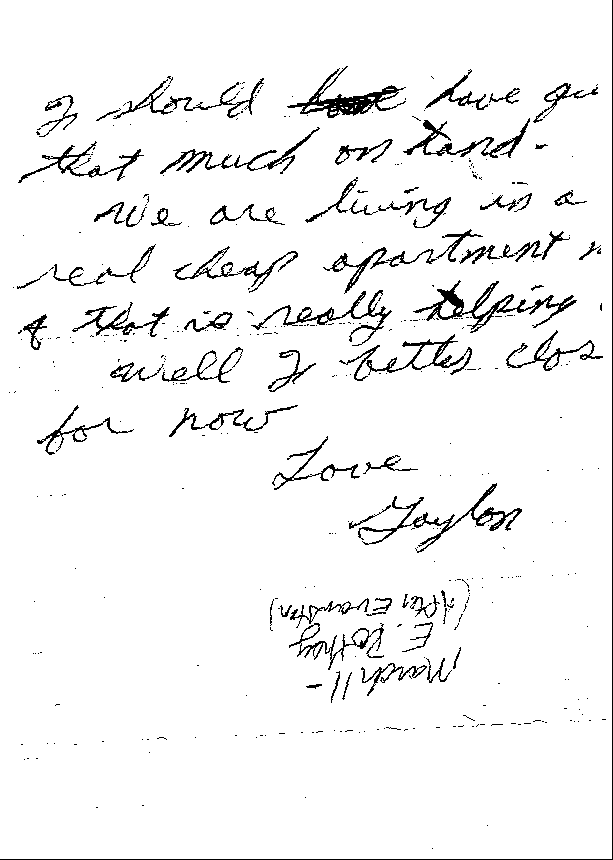 I should have
that much on hand.
We are living in a
real cheap apartment
& that is really helping
Well I better clos
for now
Love
Gaylon
March 11 -
E. Pothay
(After Evanston)